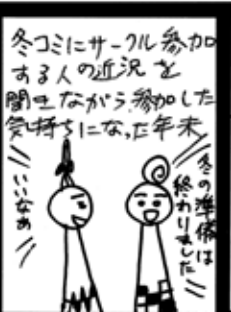 冬コミにサークル参加
する人の近況を
聞きながら、参加した
気持ちになった年末
冬の準備は
終わりました
いいなぁ